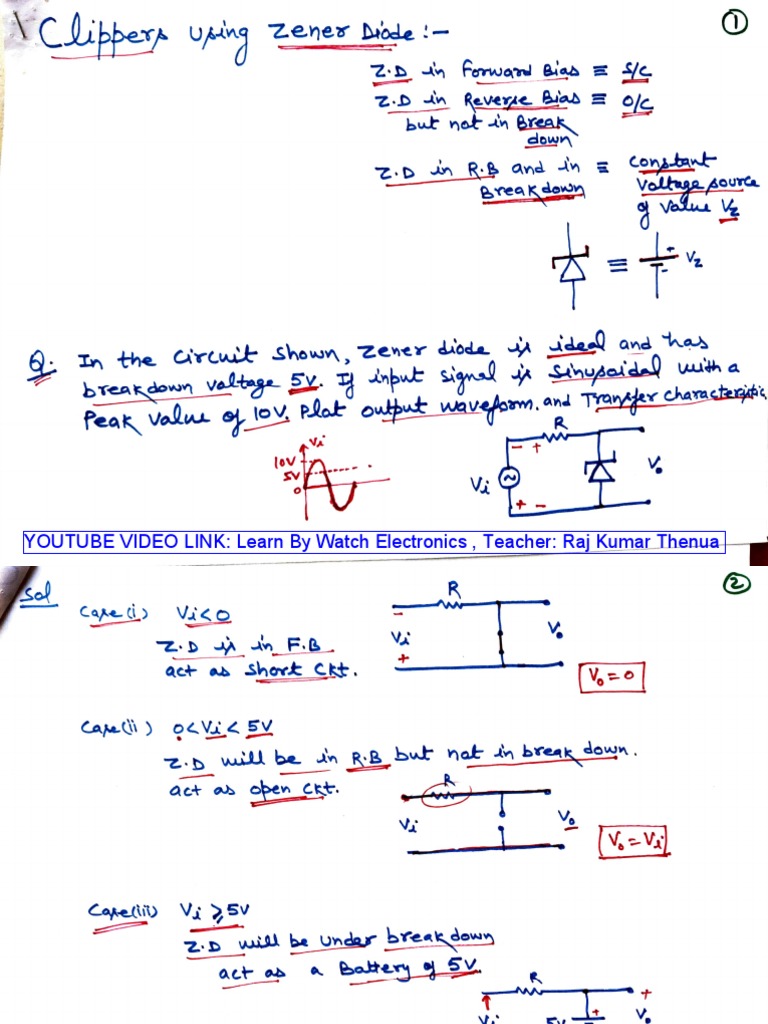 Clippers using Zener Diode :-
①
Z.D in Forward Bias ≡ S/C
Z.D in Reverse Bias ≡ O/C
but not in Break
down
Z.D in R.B and in ≡ constant
Breakdown voltage source
of value Vz
≡ + - Vz
Q. In the circuit shown, Zener diode is ideal and has
breakdown voltage 5V. If input signal is sinusoidal with a
Peak value of 10V. Plot output waveform. and Transfer characteristic.
Vi
10V
5V
0
R
- +
Vi ~ Vo
+ -
YOUTUBE VIDEO LINK: Learn By Watch Electronics , Teacher: Raj Kumar Thenua
Sol
②
Case(i) Vi<0
Z.D is in F.B
act as short ckt.
R
-
Vi Vo
+
Vo = 0
Case(ii) 0<Vi<5V
Z.D will be in R.B but not in break down.
act as open ckt.
R
Vi Vo
Vo = Vi
Case(iii) Vi ≥ 5V
Z.D will be under breakdown
act as a Battery of 5V.
R
+
Vi 5V + Vo